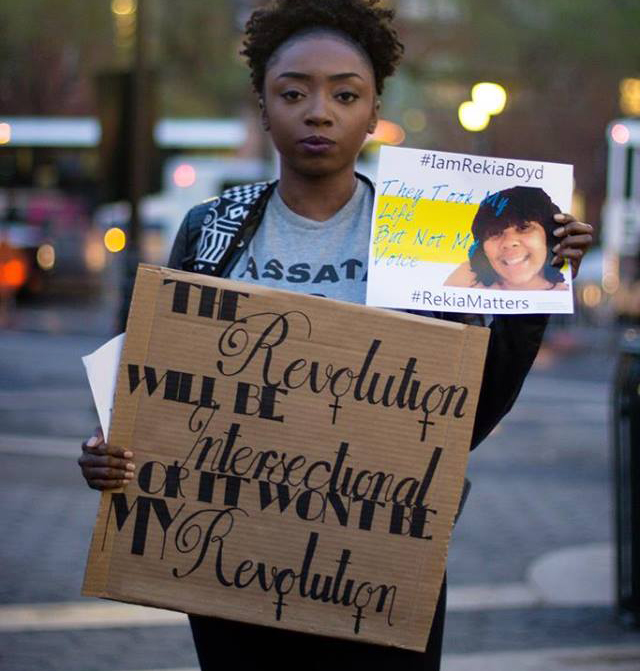 #IamRekiaBoyd
They Took My
Life
But Not M
Voice
#RekiaMatters
ASSATA
THE
Revolution
WILL BE
Intersectional
OR IT WON'T BE
MY
Revolution